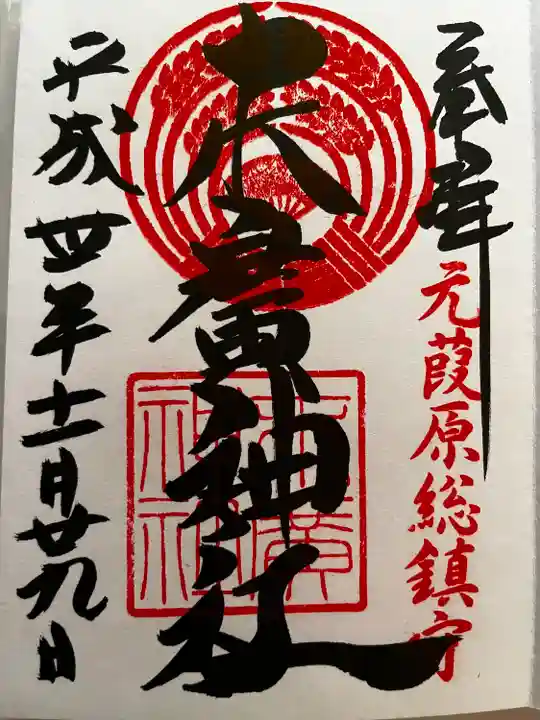 奉拝
元葭原総鎮守
末廣神社
平成四年十一月廿九日
末廣神社